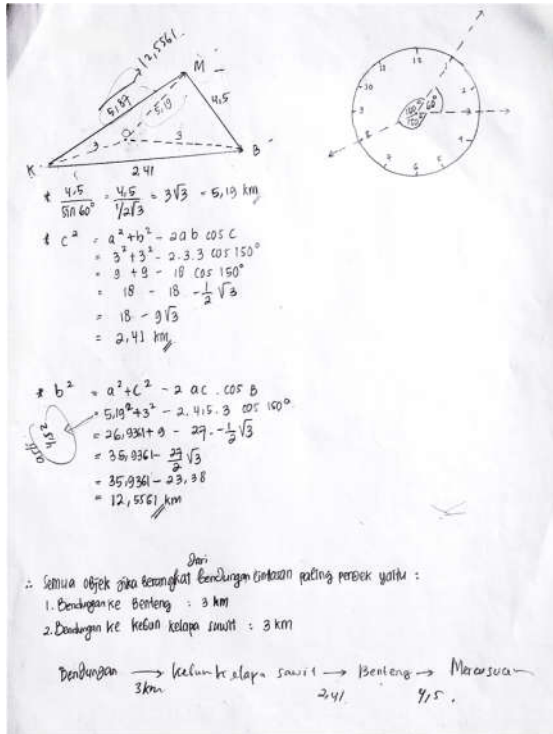 12,5561
M
5,87
5,19
4,5
3
3
K
B
2,41
12
1
2
3
4
5
6
8
9
10
11
60°
* 4,5 / sin 60° = 4,5 / 1/2√3 = 3√3 = 5,19 km
* c² = a² + b² - 2ab cos C
= 3² + 3² - 2.3.3 cos 150°
= 9 + 9 - 18 cos 150°
= 18 - 18 - 1/2 √3
= 18 - 9√3
= 2,41 km
* b² = a² + c² - 2 ac . cos B
= 5,19² + 3² - 2.4,5.3 cos 150°
= 26,9361 + 9 - 27. - 1/2 √3
= 35,9361 - 27/2 √3
= 35,9361 - 23,38
= 12,5561 km
dari
∴ Semua objek jika berangkat bendungan lintasan paling pendek yaitu :
1. Bendungan ke Benteng : 3 km
2. Bendungan ke kebun kelapa sawit : 3 km
Bendungan → kebun kelapa sawit → Benteng → Mercusuar
3km 2,41 4,5 .